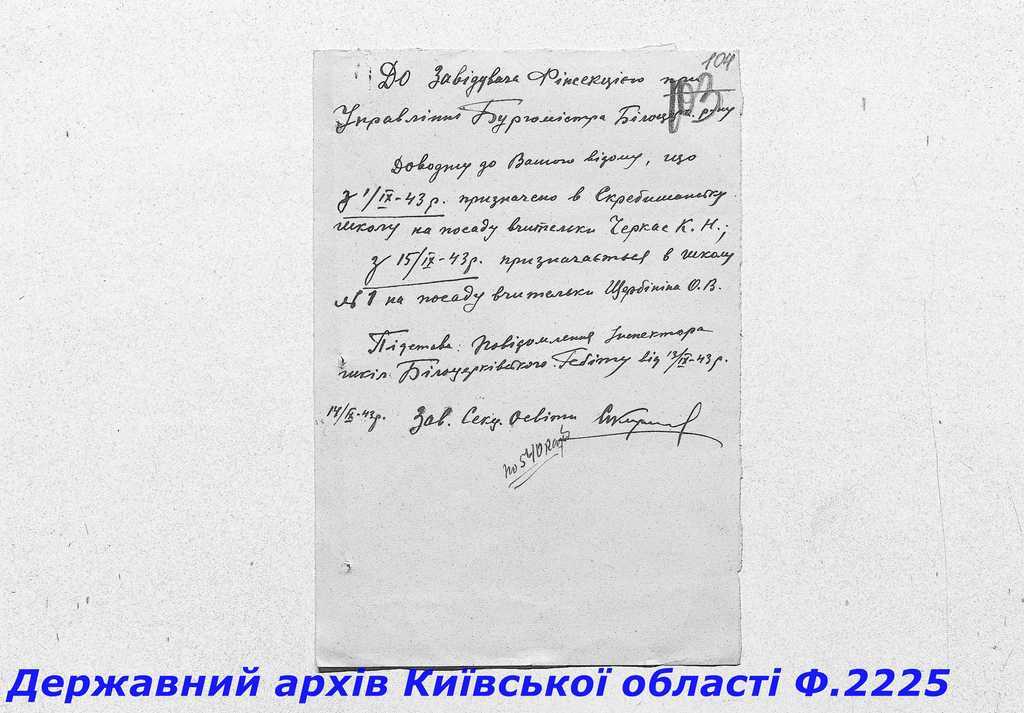 104
103
До Завідувача Фінсекцією при
Управлінні Бургомістра Білоцерк. р-ну
Доводжу до Вашого відому, що
з 1/IX-43 р. призначено в Скребишанську
школу на посаду вчительки Черкас К. Н.;
з 15/IX-43 р. призначається в школу
№ 1 на посаду вчительки Щербініна О. В.
Підстава: Повідомлення Інспектора
шкіл Білоцерківського Гебіту від 13/IX-43 р.
14/IX-43 р. Зав. Секц. Освіти
по 540
Державний архів Київської області Ф.2225